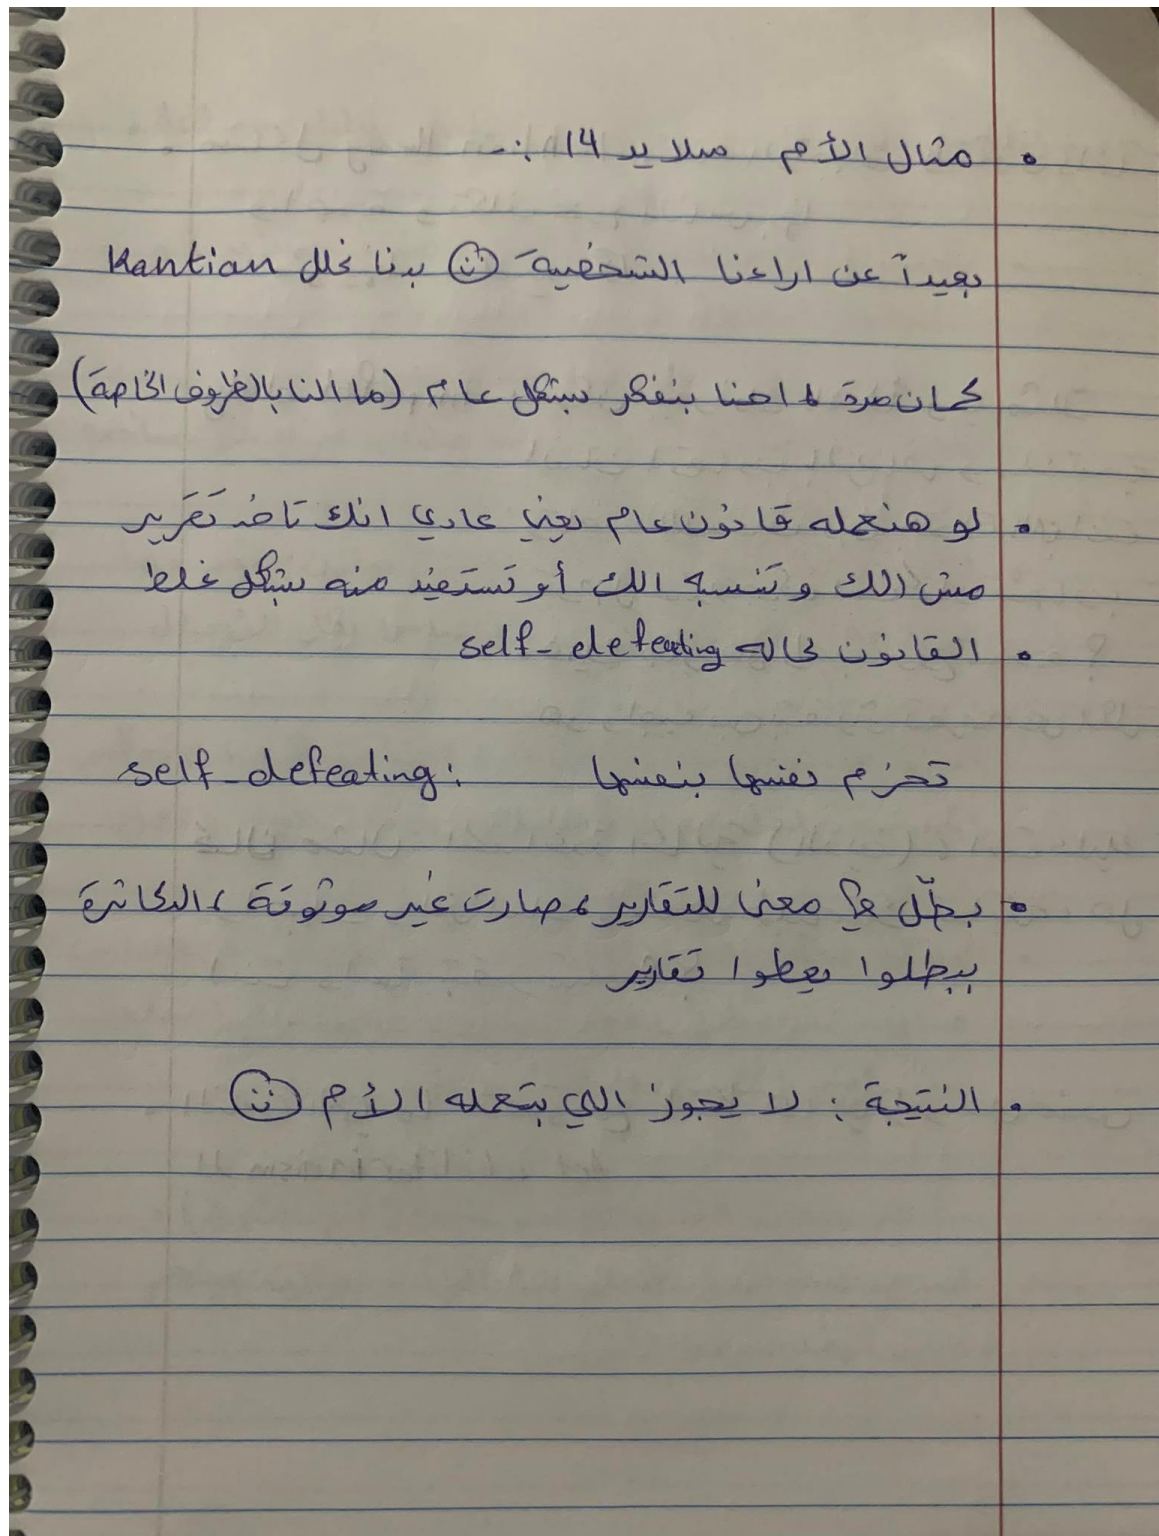 • مثال الأم سلايد 14 :-
بعيداً عن اراءنا الشخصية بدنا نحلل Kantian
كمان مرة، احنا بنفكر بشكل عام (ما النا بالظروف الخاصة)
• لو هنعمله قانون عام يعني عادي انك تاخد تقرير
مش الك و تنسبه الك أو تستفيد منه بشكل غلط
• القانون لحاله self-defeating
self-defeating: تهزم نفسها بنفسها
• بطّل في معنى للتقارير، صارت غير موثوقة، الدكاترة
ببطلوا يعطوا تقارير
• النتيجة : لا يجوز اللي بتعمله الأم